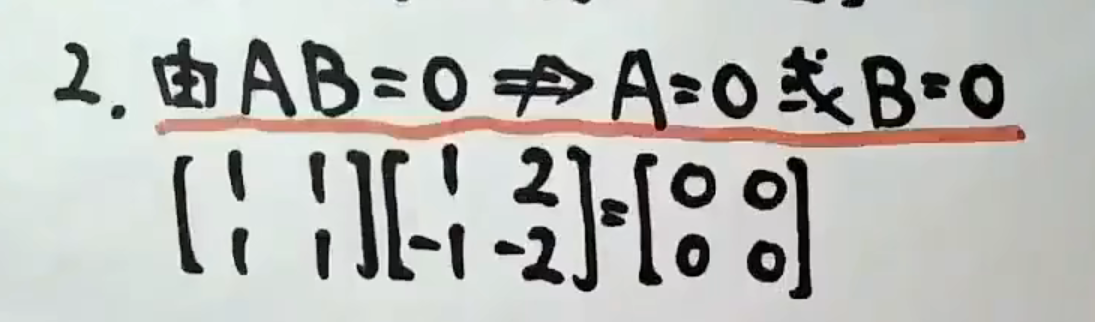 2. 由AB=0⇏A=0或B=0
[1 1
1 1][1 2
-1 -2]=[0 0
0 0]